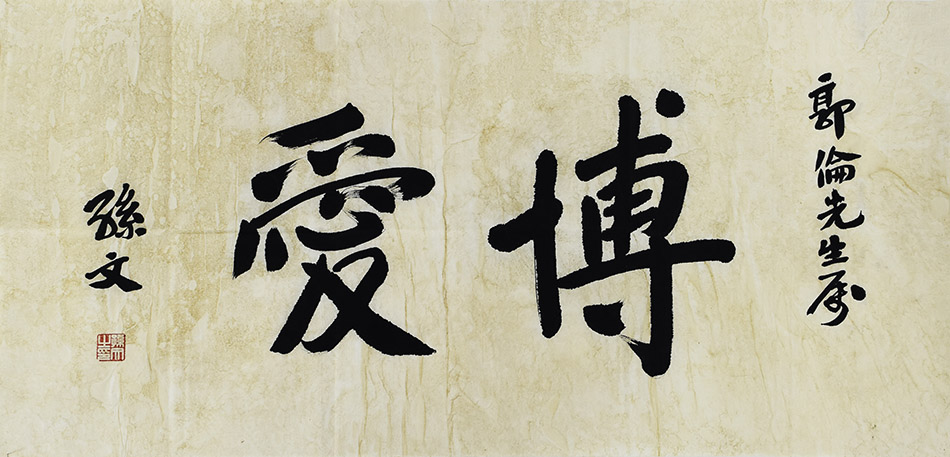 郭倫先生属
博愛
孫文
孫文之印